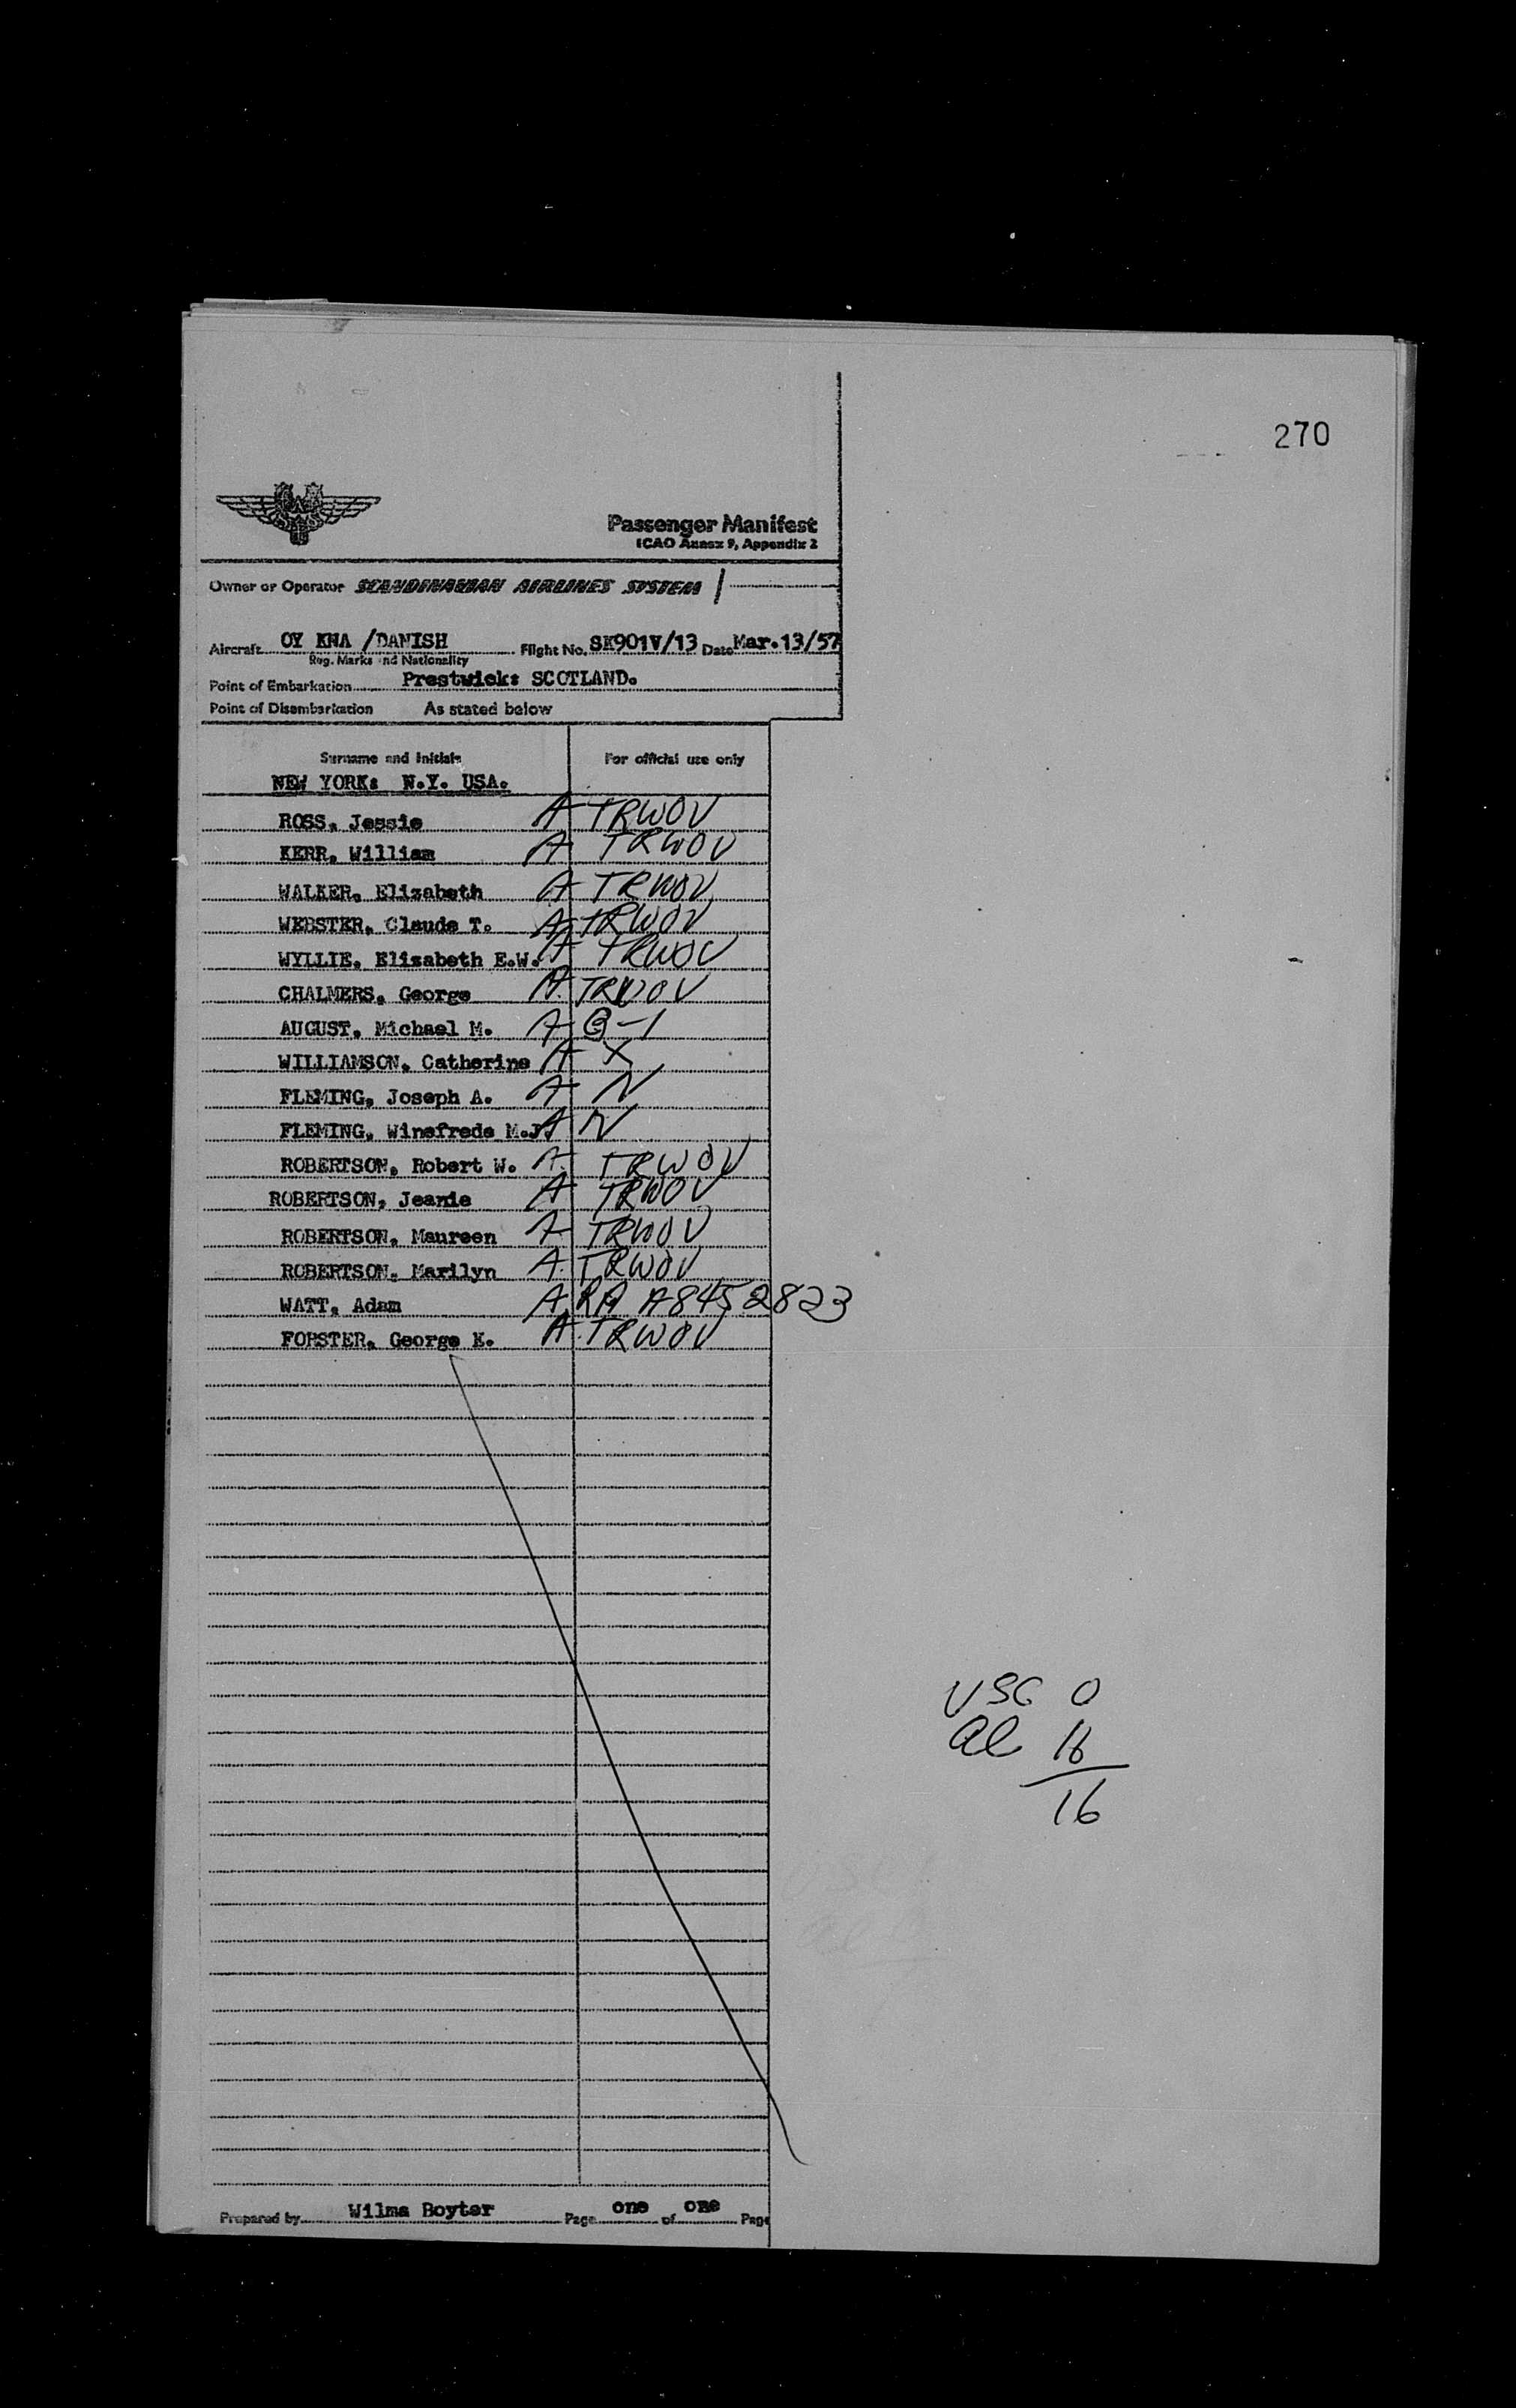 270
Passenger Manifest
ICAO Annex 9, Appendix 2
Owner or Operator SCANDINAVIAN AIRLINES SYSTEM
Aircraft OY KNA /DANISH Flight No. SK901V/13 Date Mar.13/57
Reg. Marks and Nationality
Point of Embarkation Prestwick: SCOTLAND.
Point of Disembarkation As stated below
Surname and Initials For official use only
NEW YORK: N.Y. USA.
ROSS, Jessie A TRWOV
KERR, William A TRWOV
WALKER, Elizabeth A TRWOV
WEBSTER, Claude T. A TRWOV
WYLLIE, Elizabeth E.W. A TRWOV
CHALMERS, George A. TRWOV
AUGUST, Michael M. A G-1
WILLIAMSON, Catherine A X
FLEMING, Joseph A. A N
FLEMING, Winefrede M.J. A N
ROBERTSON, Robert W. A. TRWOV
ROBERTSON, Jeanie A TRWOV
ROBERTSON, Maureen A TRWOV
ROBERTSON, Marilyn A. TRWOV
WATT, Adam A RA A8452823
FORSTER, George K. A. TRWOV
USC 0
al 16
16
Prepared by Wilma Boyter Page one of one Page